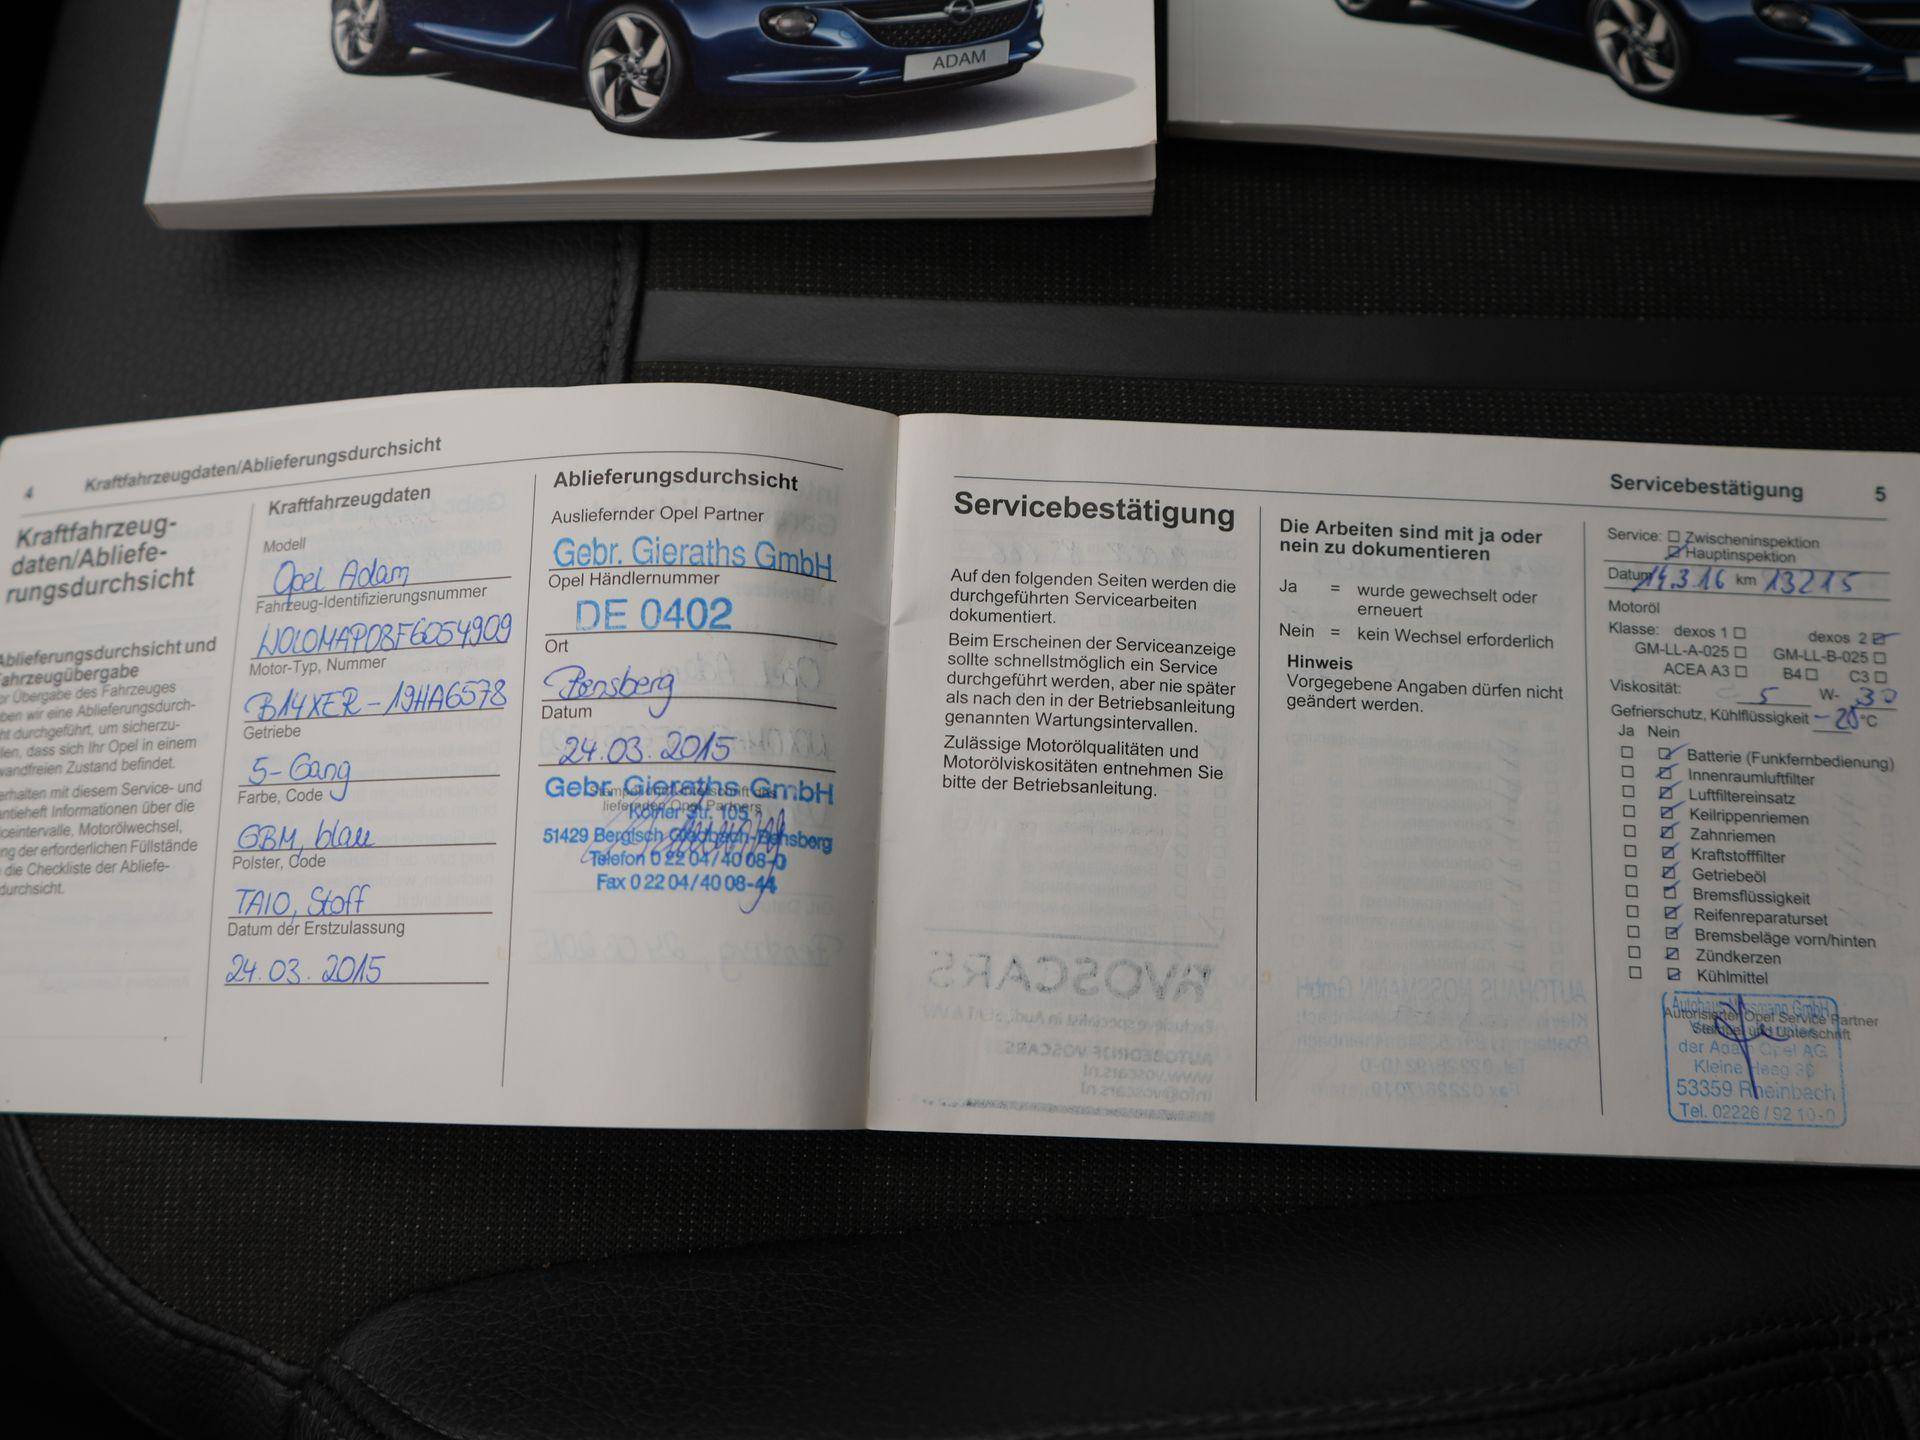 ADAM
4 Kraftfahrzeugdaten/Ablieferungsdurchsicht
Kraftfahrzeug-
daten/Abliefe-
rungsdurchsicht
Ablieferungsdurchsicht und
Fahrzeugübergabe
er Übergabe des Fahrzeuges
ben wir eine Ablieferungsdurch-
ht durchgeführt, um sicherzu-
llen, dass sich Ihr Opel in einem
wandfreien Zustand befindet.
erhalten mit diesem Service- und
antieheft Informationen über die
iceintervalle, Motorölwechsel,
ng der erforderlichen Füllstände
die Checkliste der Abliefe-
durchsicht.
Kraftfahrzeugdaten
Modell
Opel Adam
Fahrzeug-Identifizierungsnummer
W0L0MAP08F6054909
Motor-Typ, Nummer
B14XER - 19HA6578
Getriebe
5-Gang
Farbe, Code
GBM, blau
Polster, Code
TAIO, Stoff
Datum der Erstzulassung
24.03.2015
Ablieferungsdurchsicht
Ausliefernder Opel Partner
Gebr. Gieraths GmbH
Opel Händlernummer
DE 0402
Ort
Bensberg
Datum
24.03.2015
Gebr. Gieraths GmbH
Kölner Str. 105
51429 Bergisch Gladbach-Bensberg
Telefon 0 22 04 / 40 08-0
Fax 0 22 04 / 40 08-44
Servicebestätigung 5
Servicebestätigung
Auf den folgenden Seiten werden die
durchgeführten Servicearbeiten
dokumentiert.
Beim Erscheinen der Serviceanzeige
sollte schnellstmöglich ein Service
durchgeführt werden, aber nie später
als nach den in der Betriebsanleitung
genannten Wartungsintervallen.
Zulässige Motorölqualitäten und
Motorölviskositäten entnehmen Sie
bitte der Betriebsanleitung.
Die Arbeiten sind mit ja oder
nein zu dokumentieren
Ja = wurde gewechselt oder
erneuert
Nein = kein Wechsel erforderlich
Hinweis
Vorgegebene Angaben dürfen nicht
geändert werden.
Service: Zwischeninspektion
Hauptinspektion
Datum 14.3.16 km 13215
Motoröl
Klasse: dexos 1 dexos 2
GM-LL-A-025 GM-LL-B-025
ACEA A3 B4 C3
Viskosität: 5 W- 30
Gefrierschutz, Kühlflüssigkeit -28 °C
Ja Nein
Batterie (Funkfernbedienung)
Innenraumluftfilter
Luftfiltereinsatz
Keilrippenriemen
Zahnriemen
Kraftstofffilter
Getriebeöl
Bremsflüssigkeit
Reifenreparaturset
Bremsbeläge vorn/hinten
Zündkerzen
Kühlmittel
Autorisierter Opel Service Partner
Stempel und Unterschrift
der Adam Opel AG
Kleine Heeg 36
53359 Rheinbach
Tel. 02226 / 92 10-0